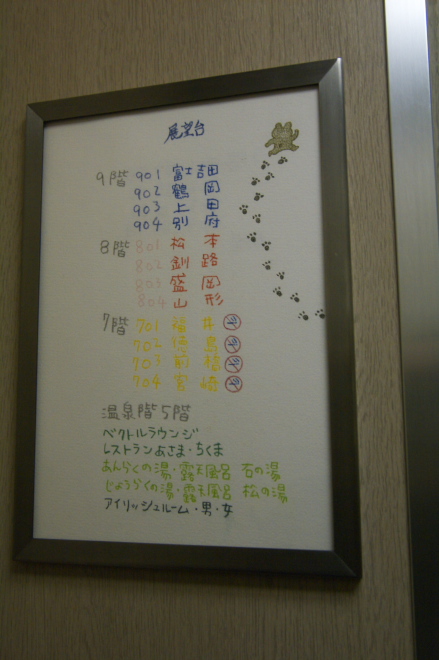 展望台
9階 901 富士吉田
902 鶴岡
903 上田
904 別府
8階 801 松本
802 釧路
803 盛岡
804 山形
7階 701 福井
702 徳島
703 前橋
704 宮崎
温泉階5階
ベクトルラウンジ
レストランあさま・ちくま
あんらくの湯・露天風呂 石の湯
じょうらくの湯・露天風呂 松の湯
アイリッシュルーム・男・女